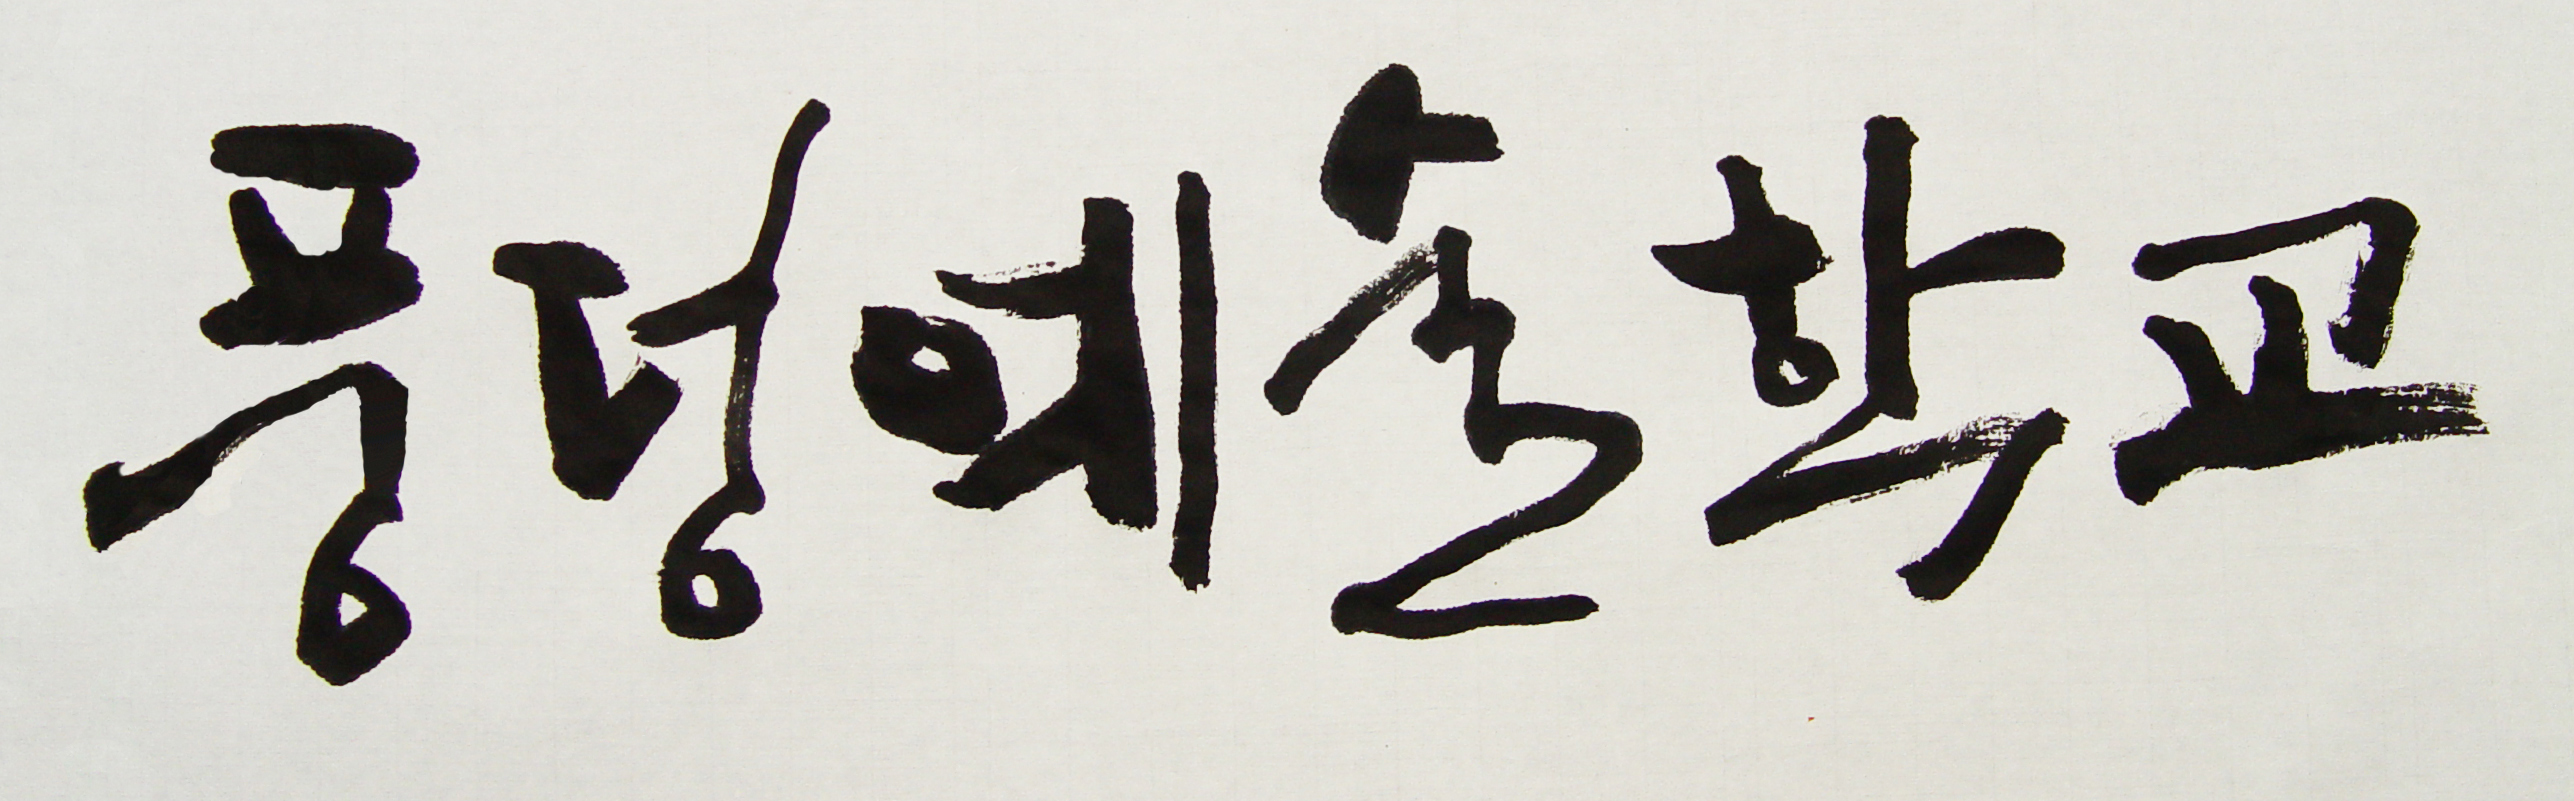 풍덩예술학교